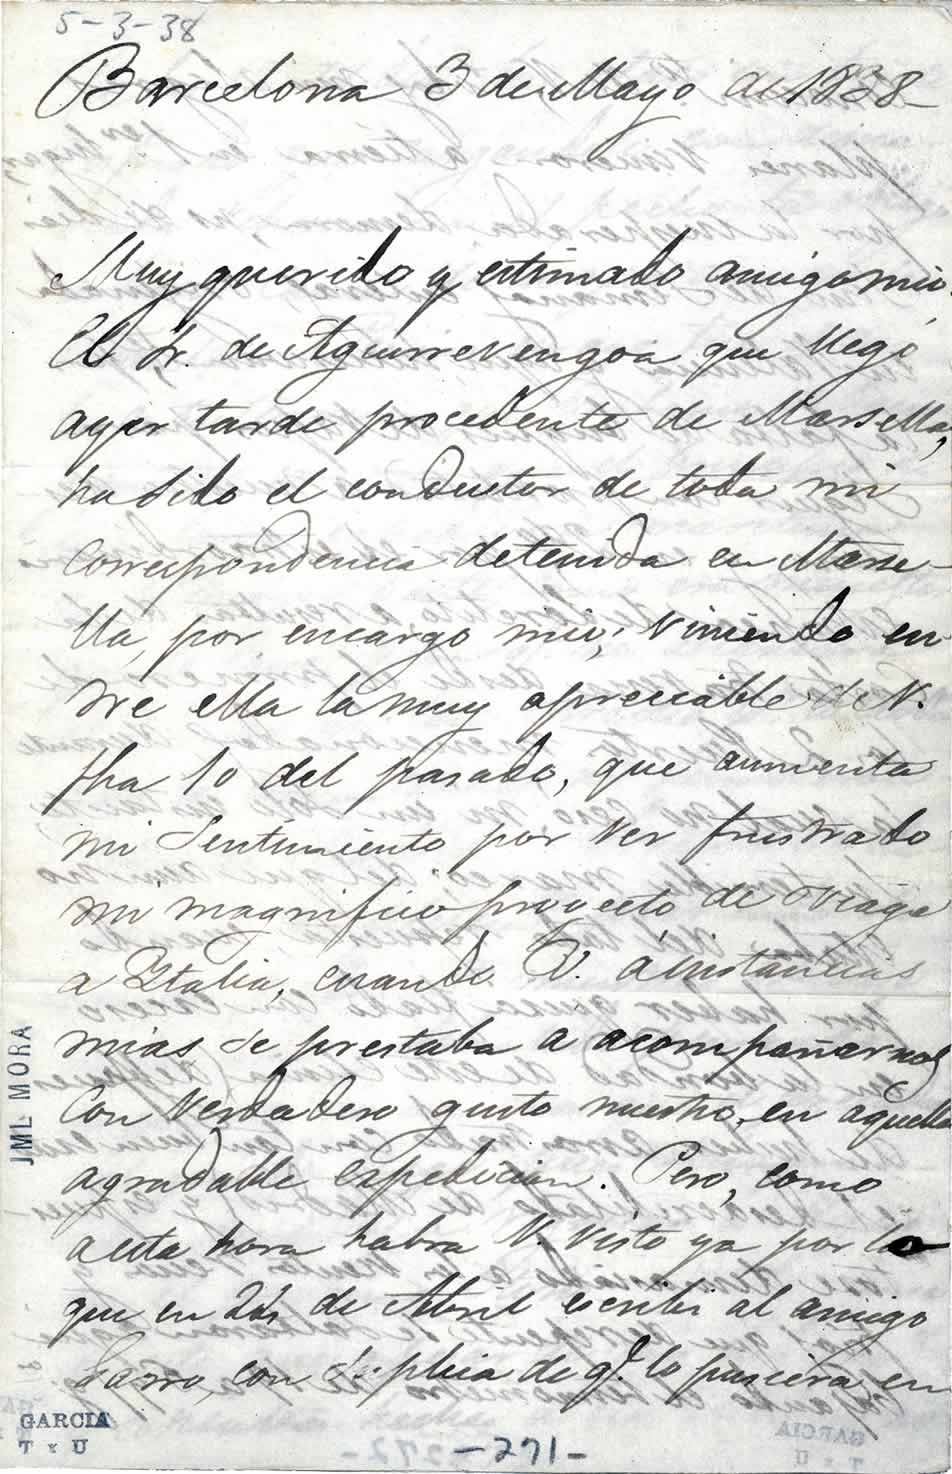 5-3-38
Barcelona 3 de Mayo de 1838-
Muy querido y estimado amigo mio.
El Sr. de Aguirrevengoa que llegó
ayer tarde procedente de Marsella,
ha sido el conductor de toda mi
correspondencia detenida en Marse-
lla, por encargo mio; viniendo en-
tre ella la muy apreciable de V.
fha 10 del pasado, que aumenta
mi sentimiento por ver frustrado
mi magnifico proyecto de viage
a Italia, cuando V. á instancias
mias se prestaba a acompañarnos
con verdadero gusto nuestro, en aquella
agradable espedicion. Pero, como
a esta hora habra V. visto ya por lo
que en 24 de Abril escribi al amigo
Garro, con suplica de qe. lo pusiera en
JML MORA
GARCIA
T Y U
-271-